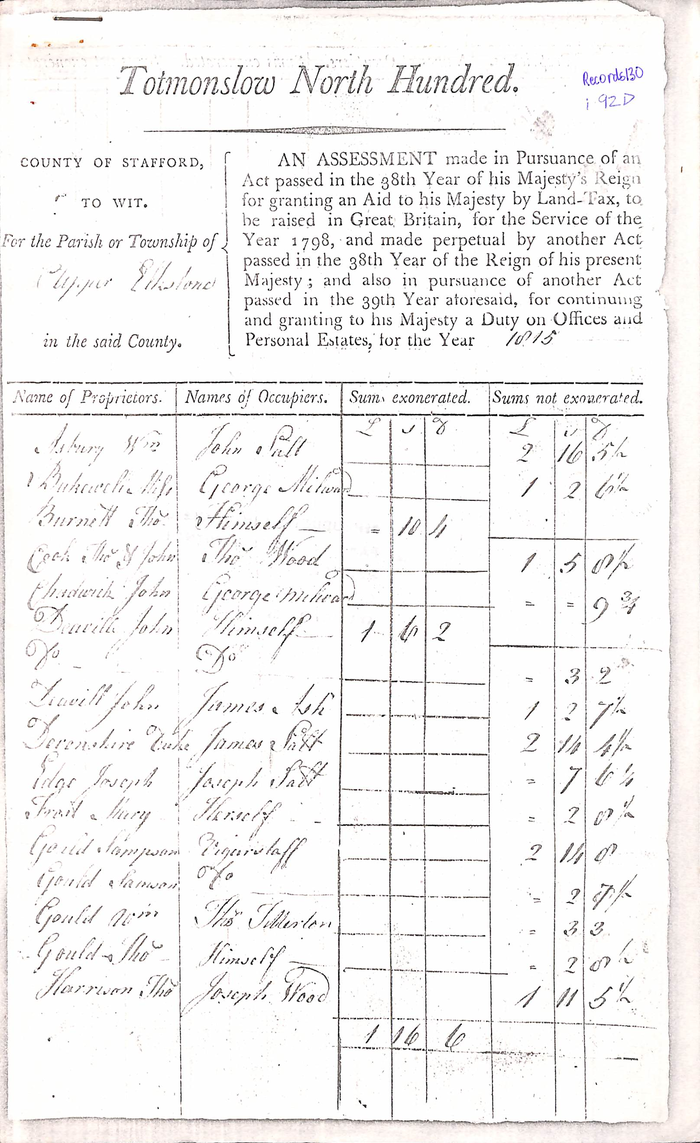 Records130
i 92D
Totmonslow North Hundred.
COUNTY OF STAFFORD,
TO WIT.
For the Parish or Township of
Upper Elkstone
in the said County.
AN ASSESSMENT made in Pursuance of an
Act passed in the 38th Year of his Majesty's Reign
for granting an Aid to his Majesty by Land-Tax, to
be raised in Great Britain, for the Service of the
Year 1798, and made perpetual by another Act
passed in the 38th Year of the Reign of his present
Majesty; and also in pursuance of another Act
passed in the 39th Year aforesaid, for continuing
and granting to his Majesty a Duty on Offices and
Personal Estates, for the Year 1815
Name of Proprietors. Names of Occupiers. Sums exonerated. Sums not exonerated.
£ s D £ s D
Asbury Wm John Salt 2 16 5½
Bakewell George Milward 1 2 6½
Burnett Tho. Himself = 10 4
Cook Tho & John Tho Wood 1 5 8½
Chadwick John George Milward = = 9¾
Deaville John Himself 1 6 2
Do Do = 3 2
Deavill John James Ash 1 2 7½
Devonshire Duke James Salt 2 14 4½
Edge Joseph Joseph Salt = 7 6½
Frost Mary Herself = 2 8½
Gould Sampson Bigerstaff 2 14 8
Gould Samson Do = 2 7½
Gould Wm Tho Titterton = 3 3
Gould Tho Himself = 2 8½
Harrison Tho Joseph Wood 1 11 5½
1 16 6